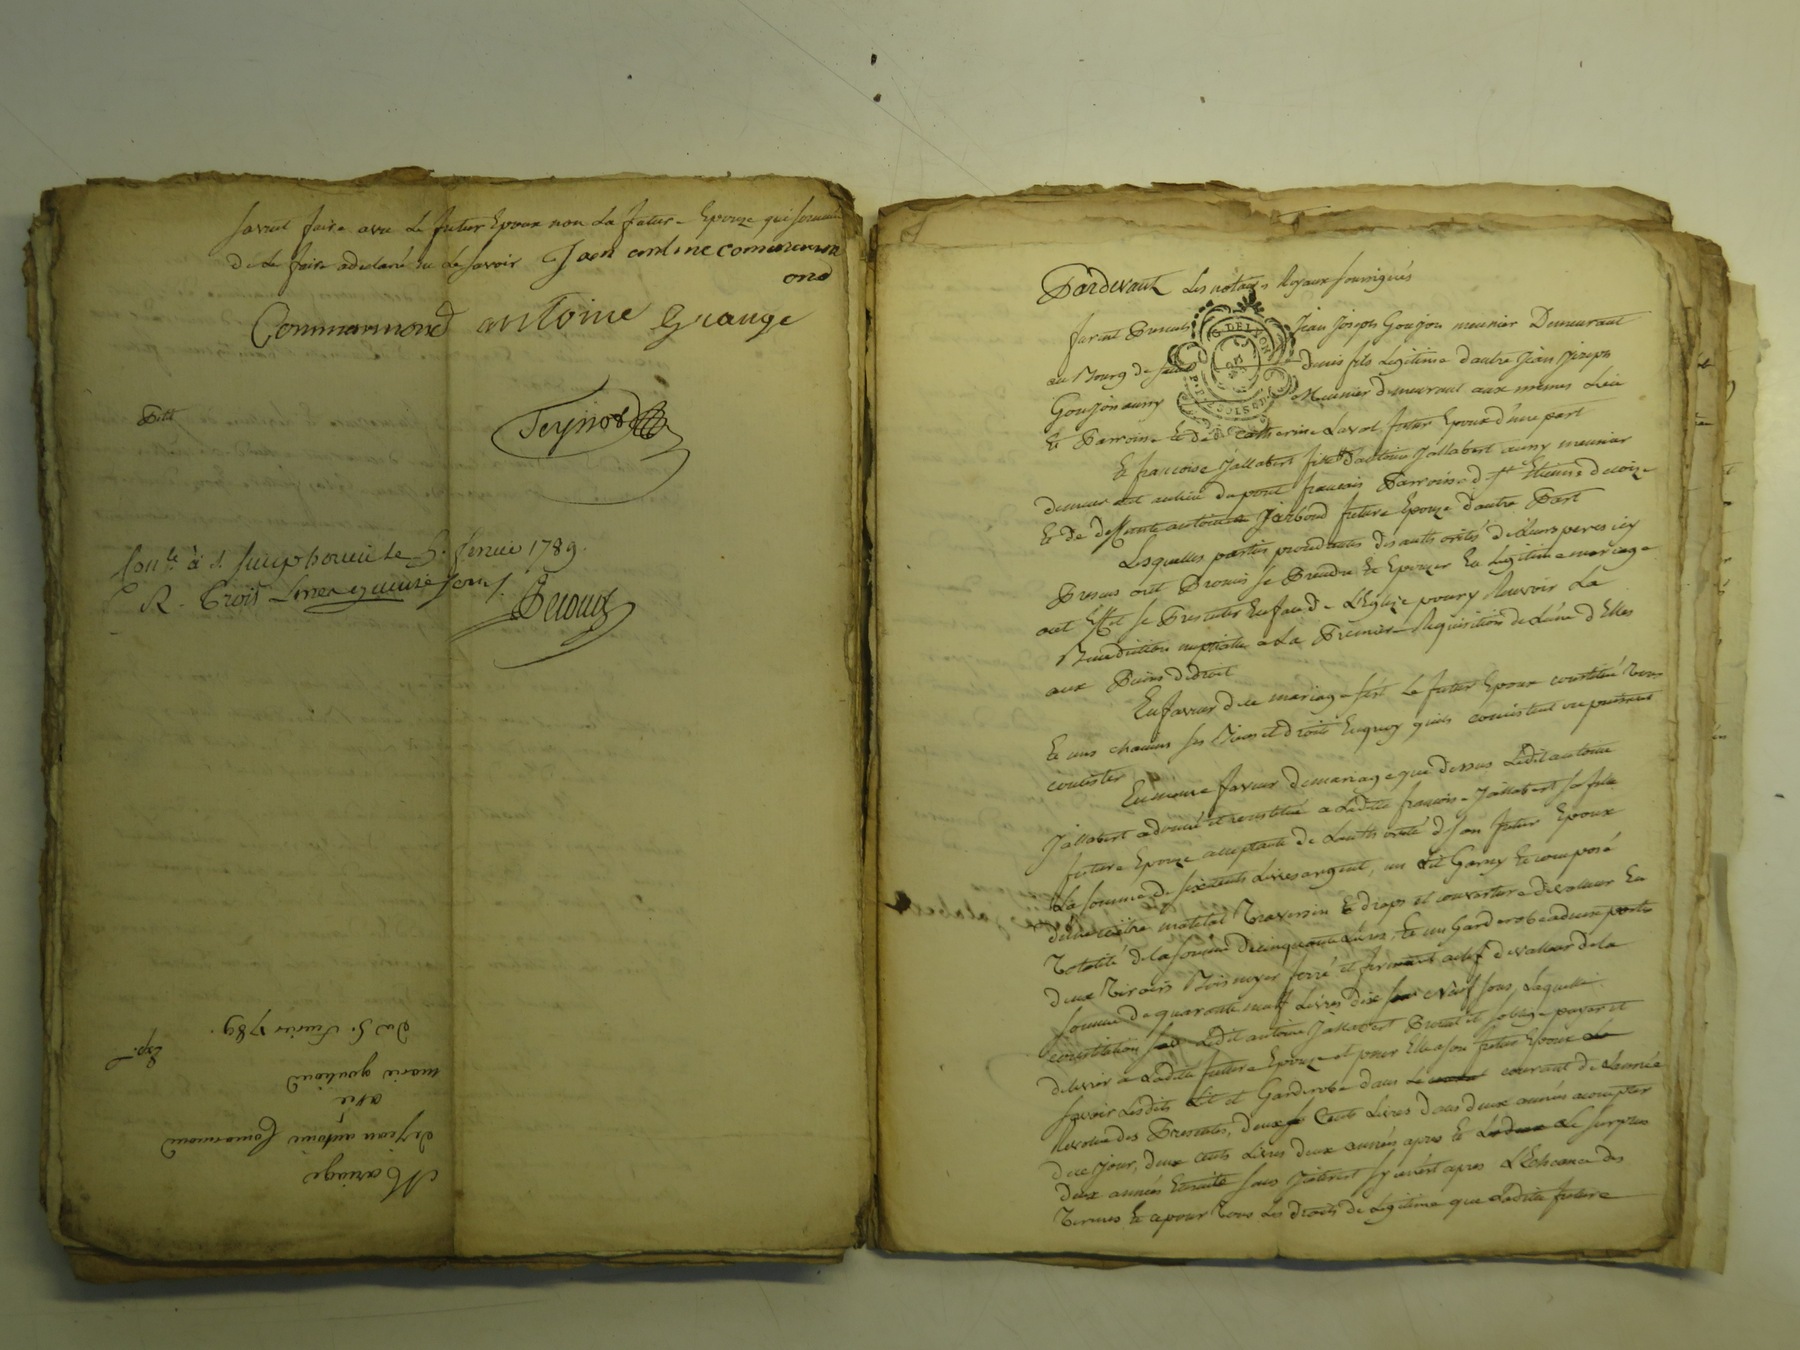 savent faire avec Le futur Epoux non La future Epouze qui
de Le faire adeclaré ne Le savoir Jaen
ond
Commarmond antoine Grange
Teynod
Conle à St. Simphorien le 5. fevrier 1789.
R. Trois Livres quinze sous
Mariage
de jean antoine Comarmond
avec
marie
Du 5. fevrier 1789.
Exp.
Pardevant Les notaires Royaux soussignés
furent Presents Jean Joseph Goujon meunier Demeurant
G. DE LYON
au Bourg de saint denis fils Legitime d'autre Jean Joseph
Goujon aussy Meunier demeurant aux memes Lieu
et Parroisse et de Catherine Laval futur Epoux d'une part
Et francoise Jallabert fille d'antoine Jallabert aussy meunier
demeurant aulieu du pont francais Parroisse de St Etienne de coize
Et de deffunte antoinette Jarboud future Epouze d'autre Part
Lesquelles parties procedantes des authorités de leurs peres icy
Presens ont Promis se Prendre et Epouzer En Legitime mariage
aut Effet se Presenter En face de L'Eglize pour y Recevoir La
Benediction nuptialle a La Premiere Requisition de L'une d'Elles
aux Peines de droit
En faveur de ce mariage s'est Le futur Epoux constitué tous
Et uns chacuns ses Biens et droits En quoy qu'ils consistent ou puissent
consister
En meme faveur de mariage que dessus Ledit antoine
Jallabert a donné et constitué a Laditte francoise Jallabert sa fille
future Epouze acceptante de Lauthorité de son futur Epoux
La somme de six cents Livres argent, un Lit Garny Et composé
d'une coitre matelat Traversin Et draps et couverture de valleur En
Totalité de la somme de cinquante Livres, Et un Garderobe a deux portes
deux Tiroirs Bois noyer ferré et fermant a clef de valleur de la
somme de quarante neuf Livres dix neuf sous, Laquelle
constitution Ledit antoine Jallabert Promet et soblige payer et
delivrer a Laditte future Epouze et pour Elle a son futur Epoux
savoir Lesdits Lit et Garderobe dans Le courant de L'année
des Presentes, deux Cents Livres dans deux années acompter
de ce jour, deux Cents Livres deux années apres Et Le surplus
deux années Ensuite sans Interest sy n'est apres L'Echeance des
Termes Et ce pour tous Les droits de Legitime que Laditte future